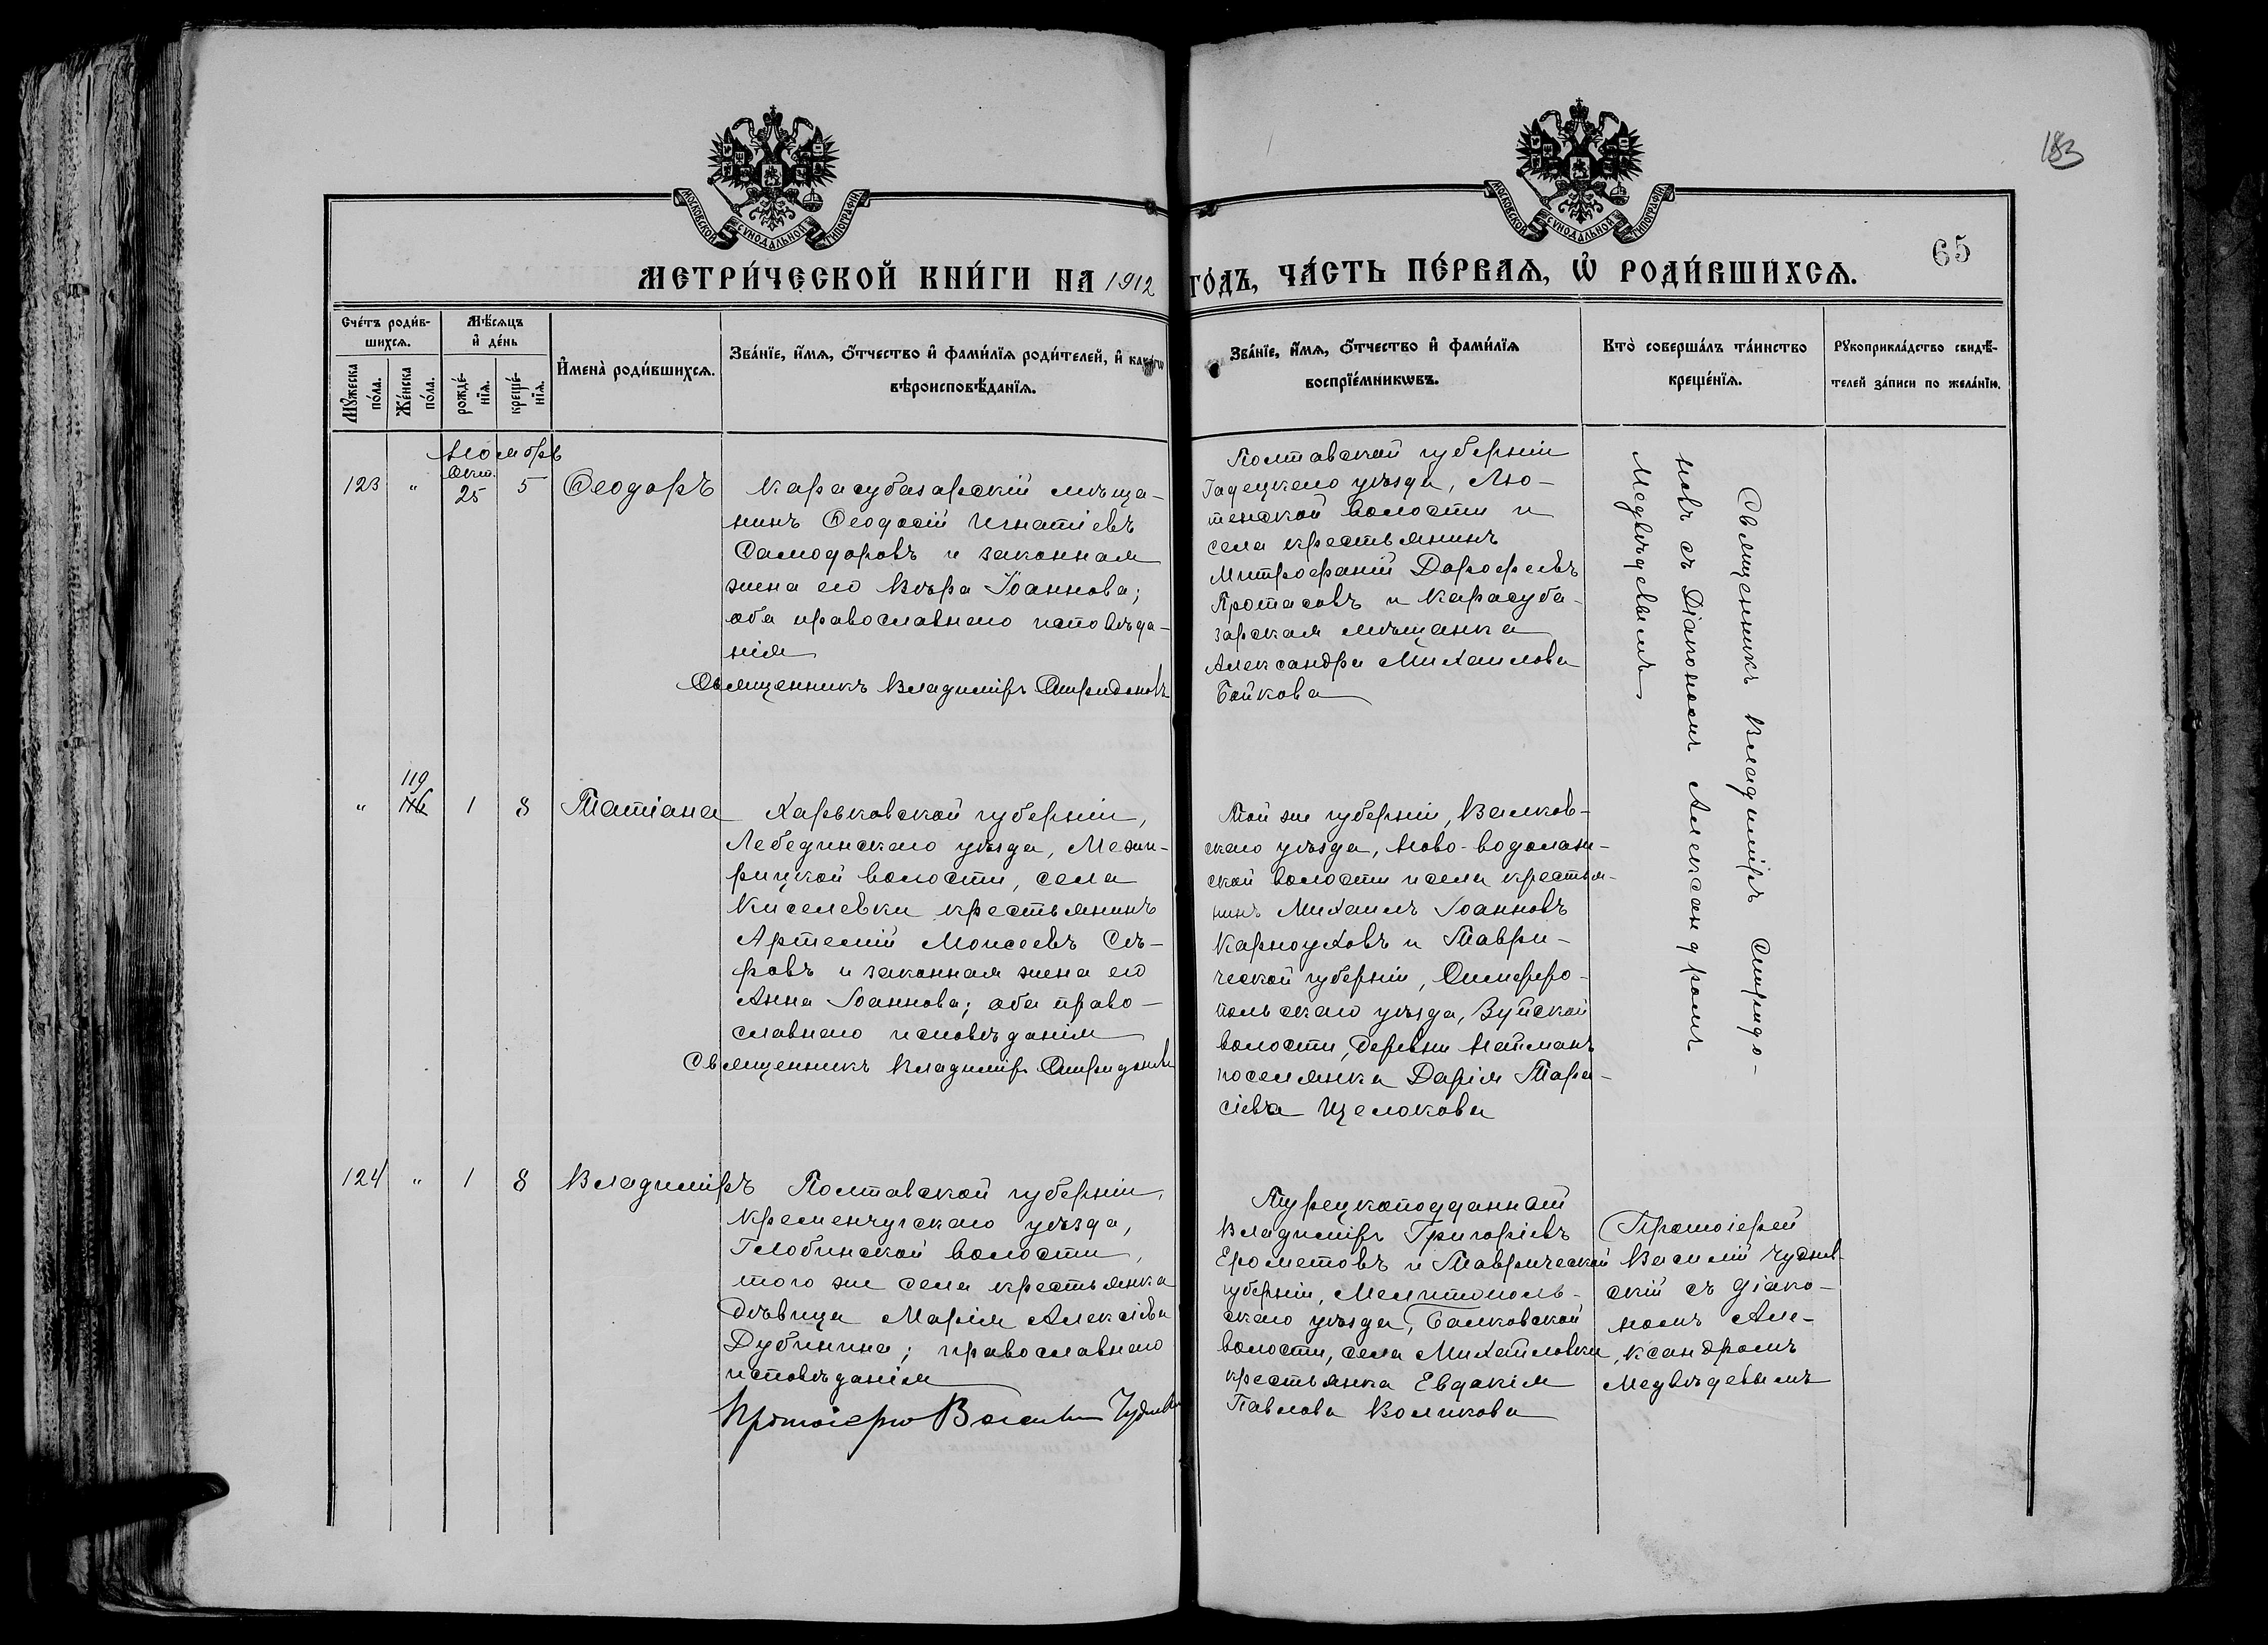 183
МОСКОВСКОЙ СѴНОДАЛЬНОЙ ТИПОГРАФІИ
МОСКОВСКОЙ СѴНОДАЛЬНОЙ ТИПОГРАФІИ
65
МЕТРИ́ЧЕСКОЙ КНИ́ГИ НА 1912 ГО́ДЪ, ЧА́СТЬ ПЕ́РВАЯ, Ѡ РОДИ́ВШИХСЯ.
Сче́тъ роди́в-
шихся.
Му́жеска
по́ла.
Же́нска
по́ла.
Мѣ́сяцъ
и де́нь
рожде́-
нїя.
креще́-
нїя.
Имена̀ роди́вшихся.
Зва́нїе, и́мя, о́тчество и фами́лїя роди́телей, и како́гѡ
вѣроисповѣ́данїя.
Зва́нїе, и́мя, о́тчество и фами́лїя
воспрїе́мникѡвъ.
Кто̀ соверша́лъ та́инство
креще́нїя.
Рукоприкла́дство свидѣ́-
телей за́писи по жела́нїю.
Ноябрь
123 " Окт. 25 5 Ѳеодоръ
Карасубазарскій мѣща-
нинъ Ѳеодосій Игнатіевъ
Самодоровъ и законная
жена его Вѣра Іоаннова;
оба православнаго исповѣда-
нія
Священникъ Владиміръ Спиридоновъ
Полтавской губерніи
Гадецкаго уѣзда, Лю-
тенской волости и
села крестьянинъ
Митрофаній Дорофеевъ
Протасовъ и Карасуба-
зарская мѣщанка
Александра Михаилова
Бойкова
Священникъ Владиміръ Спиридо-
новъ съ Діакономъ Александромъ
Медвѣдевымъ
" 119 116 1 8 Татіана
Харьковской губерніи,
Лебединскаго уѣзда, Межи-
рицкой волости, села
Киселевки крестьянинъ
Артемій Моисеевъ Сѣ-
ровъ и законная жена его
Анна Іоаннова; оба право-
славнаго исповѣданія
Священникъ Владиміръ Спиридоновъ
Той же губерніи, Валков-
скаго уѣзда, Ново-водолаж-
ской волости и села крестья-
нинъ Михаилъ Іоанновъ
Карноуховъ и Таври-
ческой губерніи, Симферо-
польскаго уѣзда, Зуйской
волости, деревни Найманъ
поселянка Дарія Тара-
сіева Щелокова
124 " 1 8 Владиміръ
Полтавской губерніи,
Кременчугскаго уѣзда,
Глобинской волости,
того же села крестьянка
дѣвица Марія Алексіева
Дубинина; православнаго
исповѣданія
Протоіерей Василій
Турецкоподданный
Владиміръ Григоріевъ
Ерометовъ и Таврической
губерніи, Мелитополь-
скаго уѣзда, Балковской
волости, села Михайловки,
крестьянка Евдокія
Павлова Воликова
Протоіерей
Василій Чуднов-
скій съ діако-
номъ Але-
ксандромъ
Медвѣдевымъ